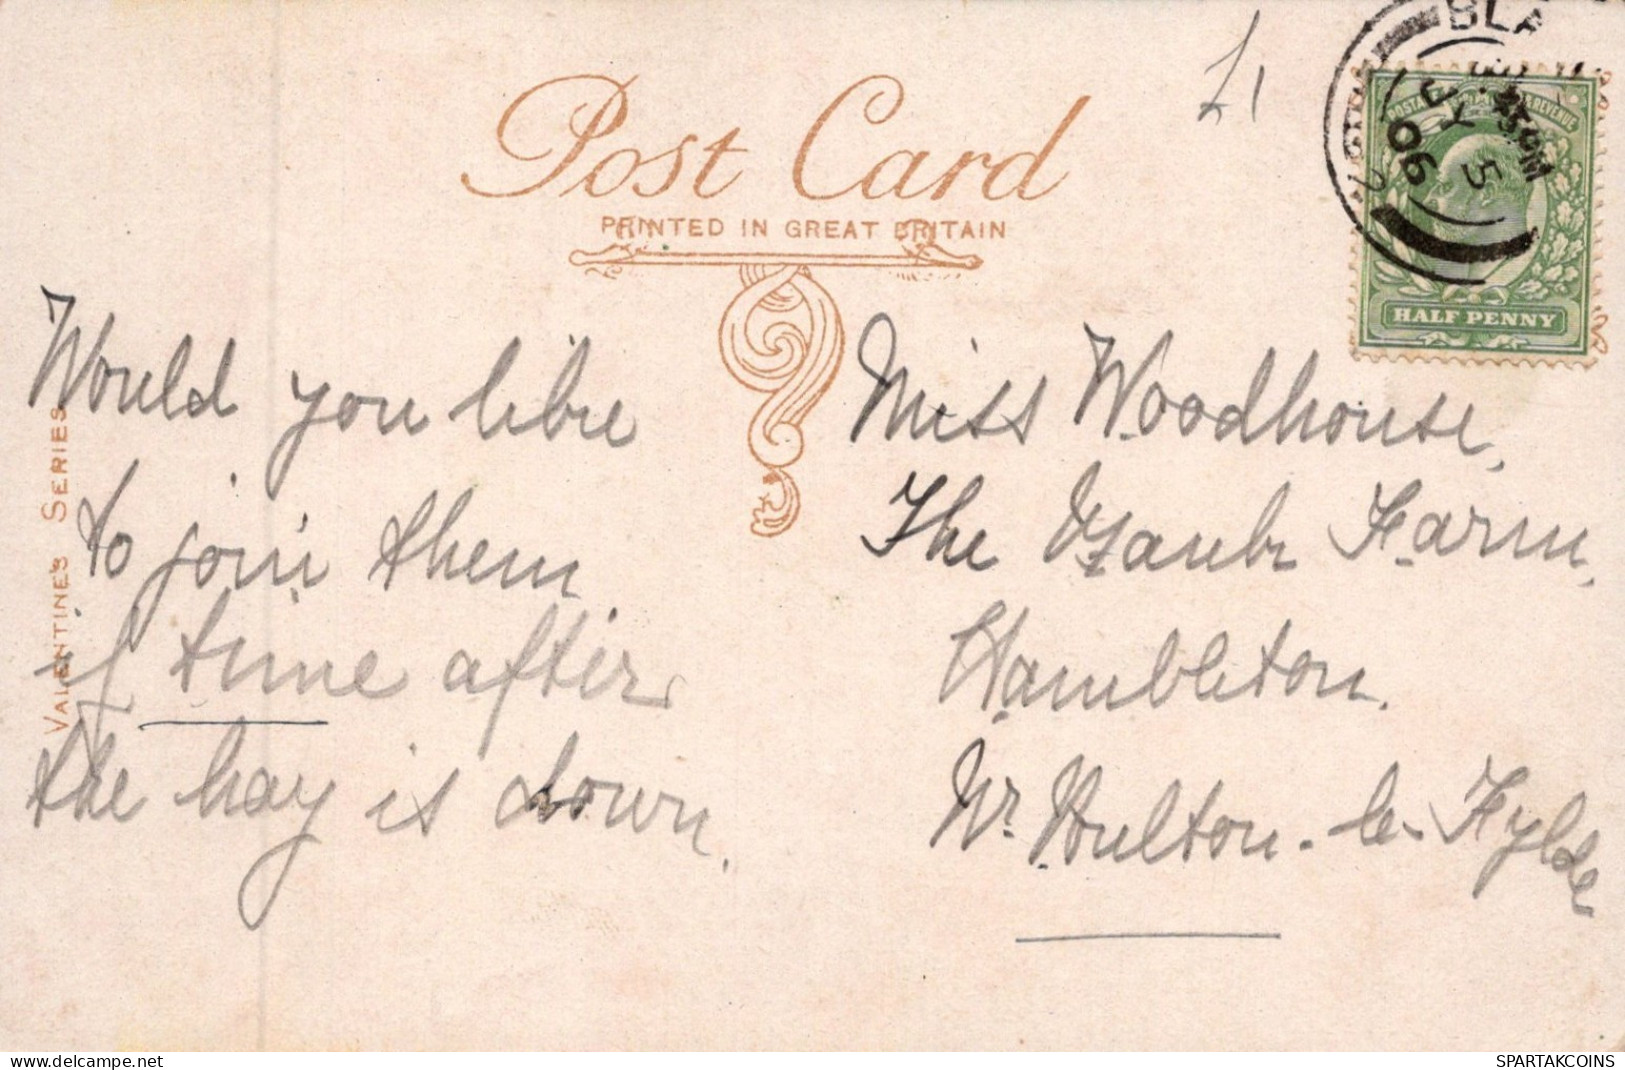 £1
BLA
JY 5
06
POSTAGE & REVENUE
HALF PENNY
Post Card
PRINTED IN GREAT BRITAIN
VALENTINE'S SERIES
Would you like
to join them
if time after
the hay is down.
Miss Woodhouse,
The Farm,
Hambleton.
Nr. Poulton-le-Fylde
delcampe.net
SPARTAKCOINS